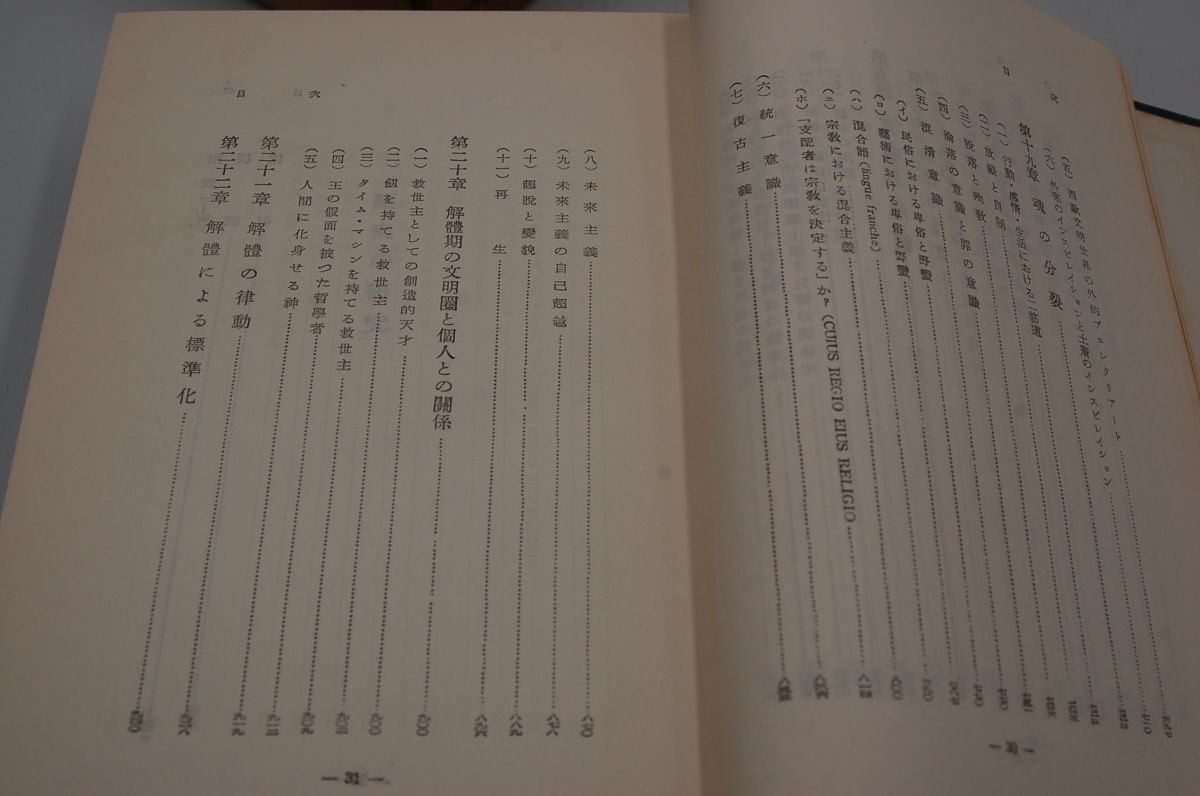 目次
(五) 西歐文明世界の外的プロレタリアート
(六) 外來のインスピレイションと土着のインスピレイション
第十九章 魂の分裂
(一) 行動・感情・生活における二筋道
(二) 放縱と自制
(三) 脱落と殉敎
(四) 淪落の意識と罪の意識
(五) 混淆意識
(イ) 民俗における卑俗と野蠻
(ロ) 藝術における卑俗と野蠻
(ハ) 混合語(lingue franche)
(ニ) 宗敎における混合主義
(ホ)「支配者は宗敎を決定する」か?(CUIUS REGIO EIUS RELIGIO)
(六) 統一意識
(七) 復古主義
— 30 —
目次
(八) 未來主義
(九) 未來主義の自己超越
(十) 超脫と變貌
(十一) 再生
第二十章 解體期の文明圈と個人との關係
(一) 救世主としての創造的天才
(二) 劔を持てる救世主
(三) タイム・マシンを持てる救世主
(四) 王の假面を被つた哲學者
(五) 人間に化身せる神
第二十一章 解體の律動
第二十二章 解體による標準化
— 31 —